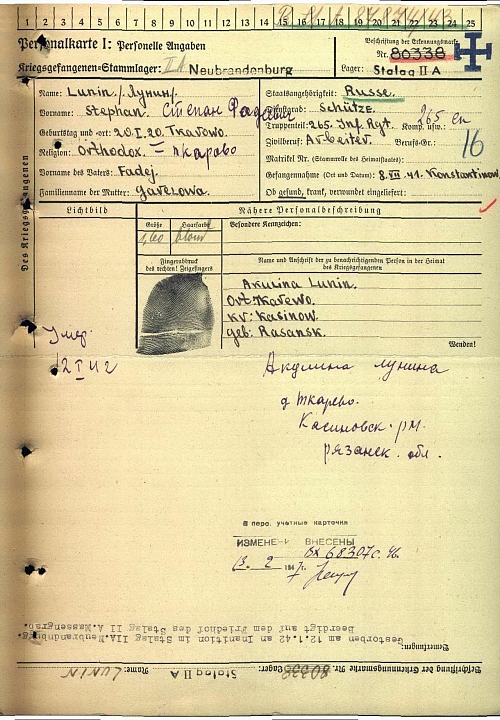 1 2 3 4 5 6 7 8 9 10 11 12 13 14 15 16 17 18 19 20 21 22 23 24 25
Personalkarte I: Personelle Angaben
Kriegsgefangenen-Stammlager: II A Neubrandenburg
Beschriftung der Erkennungsmarke
Nr. 80338
Lager: Stalag II A
Des Kriegsgefangenen
Name: Lunin. /Лунин/.
Vorname: Stephan. Степан Фадеевич
Geburtstag und -ort: 20.I.20. Tkarowo.
Religion: Orthodox. - Ткарово
Vorname des Vaters: Fadej.
Familienname der Mutter: Gavelowa.
Staatsangehörigkeit: Russe.
Dienstgrad: Schütze.
Truppenteil: 265. Inf. Rgt. Komp. usw.: 265 сп
Zivilberuf: Arbeiter. Berufs-Gr.: 16
Matrikel Nr. (Stammrolle des Heimatstaates):
Gefangennahme (Ort und Datum): 8.VII.41. Konstantinow.
Ob gesund, krank, verwundet eingeliefert:
Lichtbild
Nähere Personalbeschreibung
Größe Haarfarbe
1,60 blond
Besondere Kennzeichen:
Fingerabdruck
des rechten! Zeigefingers
Name und Anschrift der zu benachrichtigenden Person in der Heimat
des Kriegsgefangenen
Akulina Lunin.
Ort: Tkarewo.
Kr: Kasinow.
geb: Rasansk.
Wenden!
Умер.
12 I 42
Акулина Лунина
д Ткарево.
Касиновск. р-н.
Рязанск. обл.
В перс. учетные карточки
ИЗМЕНЕНИЯ ВНЕСЕНЫ
13. 2 194 г.
вх 68307с. 46
Bemerkungen:
Gestorben am 12.1.42 an Inanition im Stalag IIA Neubrandenburg.
Beerdigt auf dem Friedhof des Stalag II A. Massengrab.
Beschriftung der Erkennungsmarke Nr. 80338 Lager: Stalag II A Name: LUNIN